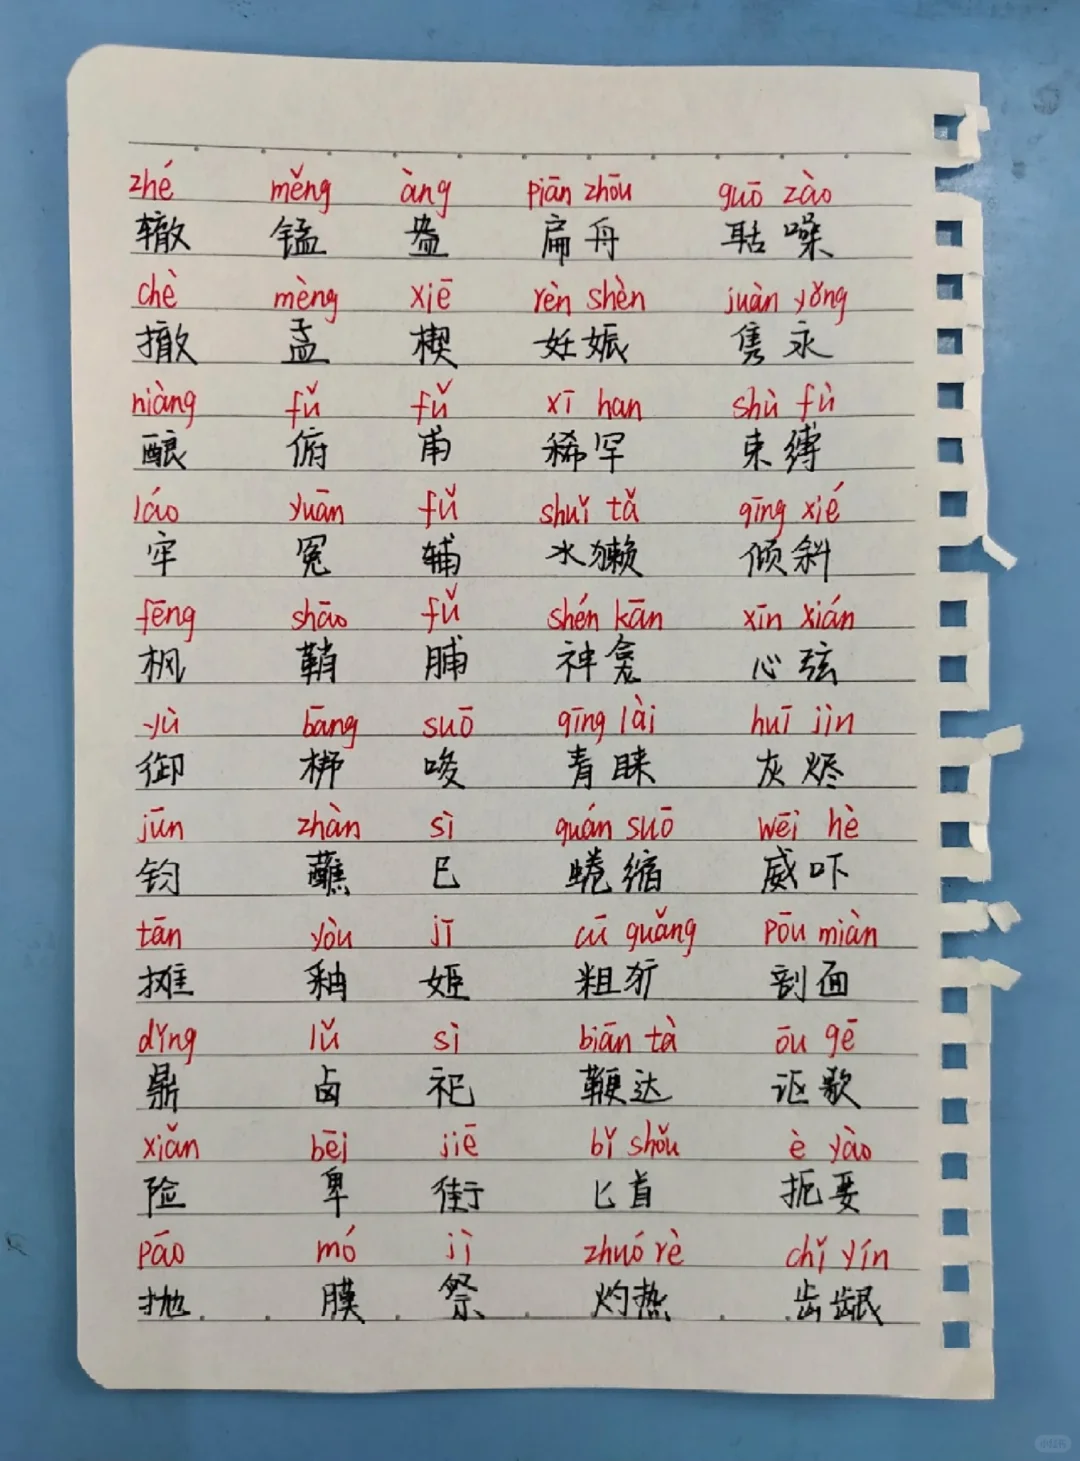 zhé měng àng piān zhōu guō zào
辙 锰 盎 扁舟 聒噪
chè mèng xiē rèn shèn juàn yǒng
撤 孟 楔 妊娠 隽永
niàng fǔ fǔ xī han shù fù
酿 俯 甫 稀罕 束缚
láo yuān fǔ shuǐ tǎ qīng xié
牢 冤 辅 水獭 倾斜
fēng shāo fǔ shén kān xīn xián
枫 鞘 脯 神龛 心弦
yù bāng suō qīng lài huī jìn
御 梆 唆 青睐 灰烬
jūn zhàn sì quán suō wēi hè
钧 蘸 巳 蜷缩 威吓
tān yòu jī cū guǎng pōu miàn
摊 釉 姬 粗犷 剖面
dǐng lǔ sì biān tà ōu gē
鼎 卤 祀 鞭挞 讴歌
xiǎn bēi jiē bǐ shǒu è yào
险 卑 街 匕首 扼要
pāo mó jì zhuó rè chǐ yín
抛 膜 祭 灼热 齿龈
小红书